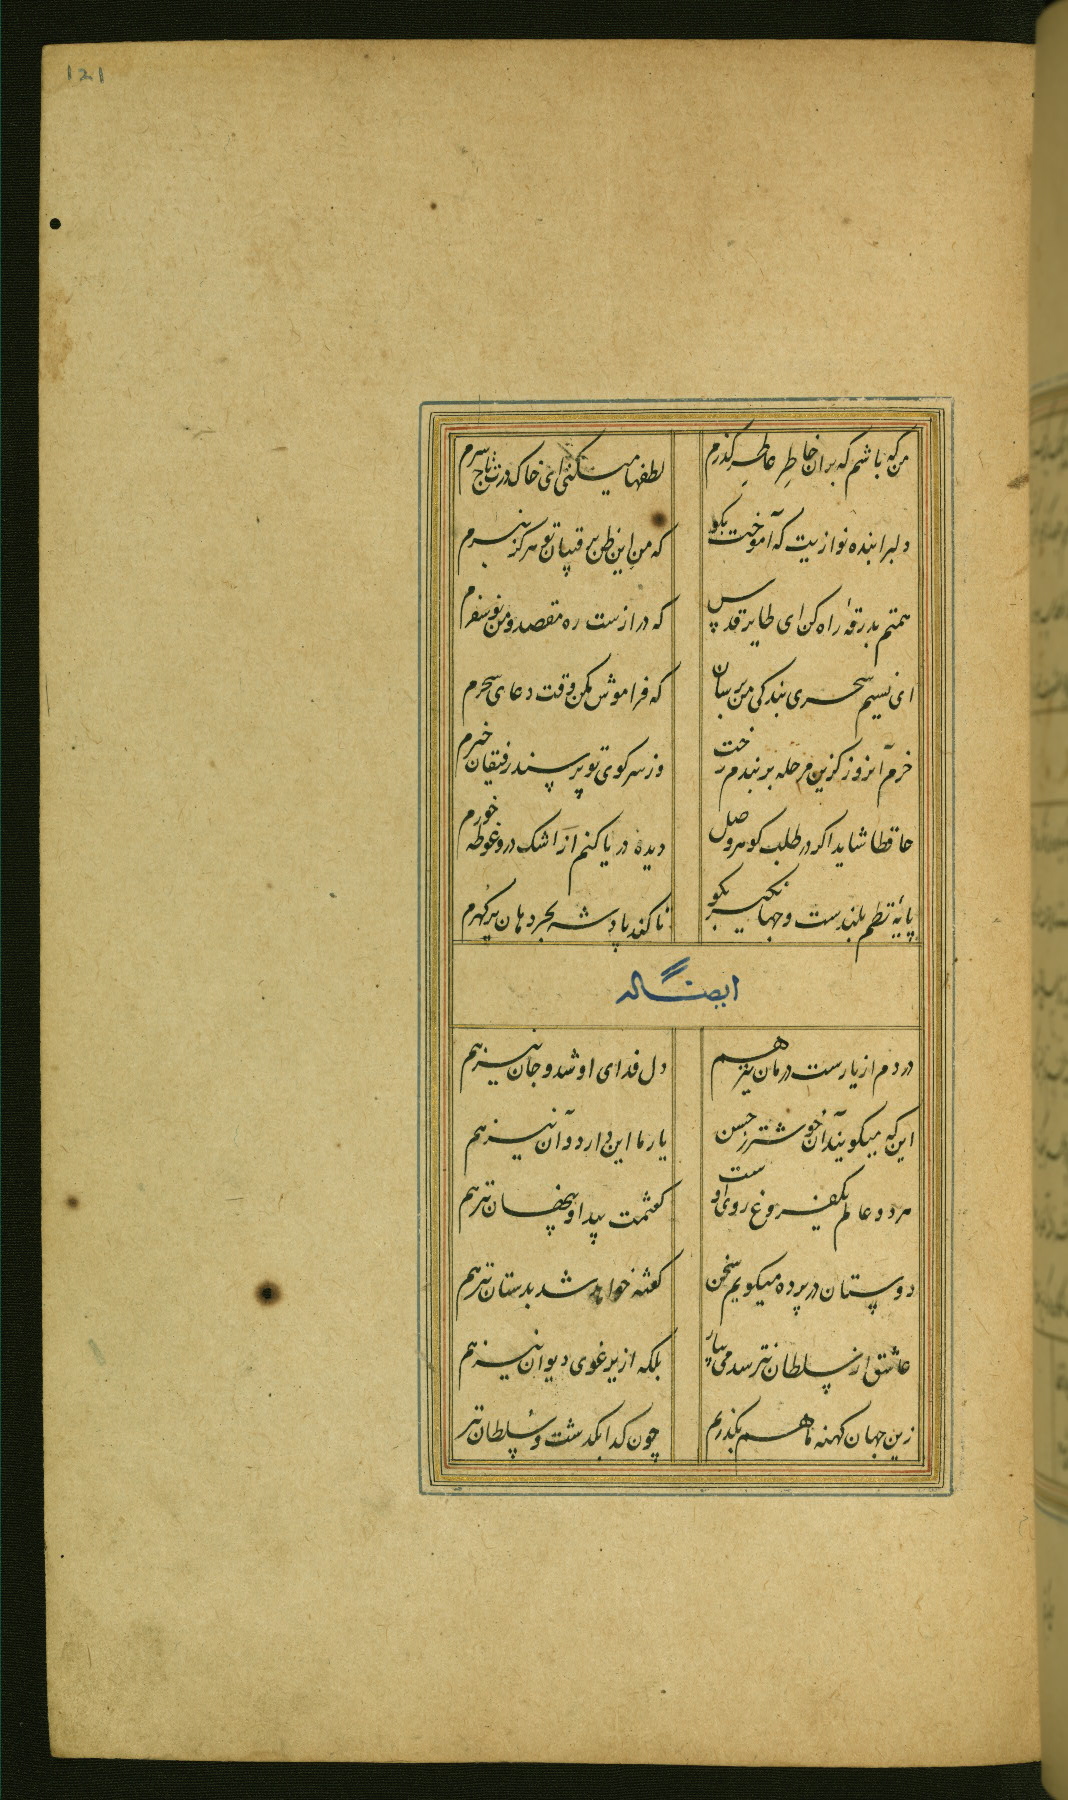 121
من که باشم که بران خاطر عاطر گذرم لطفها میکنی ای خاک درت تاج سرم
دلبرا بنده نوازیت که آموخت بگو که من این ظن برقیبان تو هرگز نبرم
همتم بدرقهٔ راه کن ای طایر قدس که درازست ره مقصد و من نوسفرم
ای نسیم سحری بندگی من برسان که فراموش مکن وقت دعای سحرم
خرم آنروز کزین مرحله بربندم رخت وز سر کوی تو پرسند رفیقان خبرم
حافظا شاید اگر در طلب گوهر وصل دیده دریا کنم از اشک و درو غوطه خورم
پایهٔ نظم بلندست و جهانگیر بگو تا کند پادشه بحر دهان پر گهرم
ایضا له
دردم از یارست و درمان نیز هم دل فدای او شد و جان نیز هم
این که میگویند آن خوشتر ز حسن یار ما این دارد و آن نیز هم
هر دو عالم یک فروغ روی اوست گفتمت پیدا و پنهان نیز هم
دوستان در پرده میگویم سخن گفته خواهد شد بدستان نیز هم
عاشق از سلطان نترسد می بیار بلکه از یرغوی دیوان نیز هم
زین جهان کهنه ما هم بگذریم چون گدا بگذشت و سلطان نیز